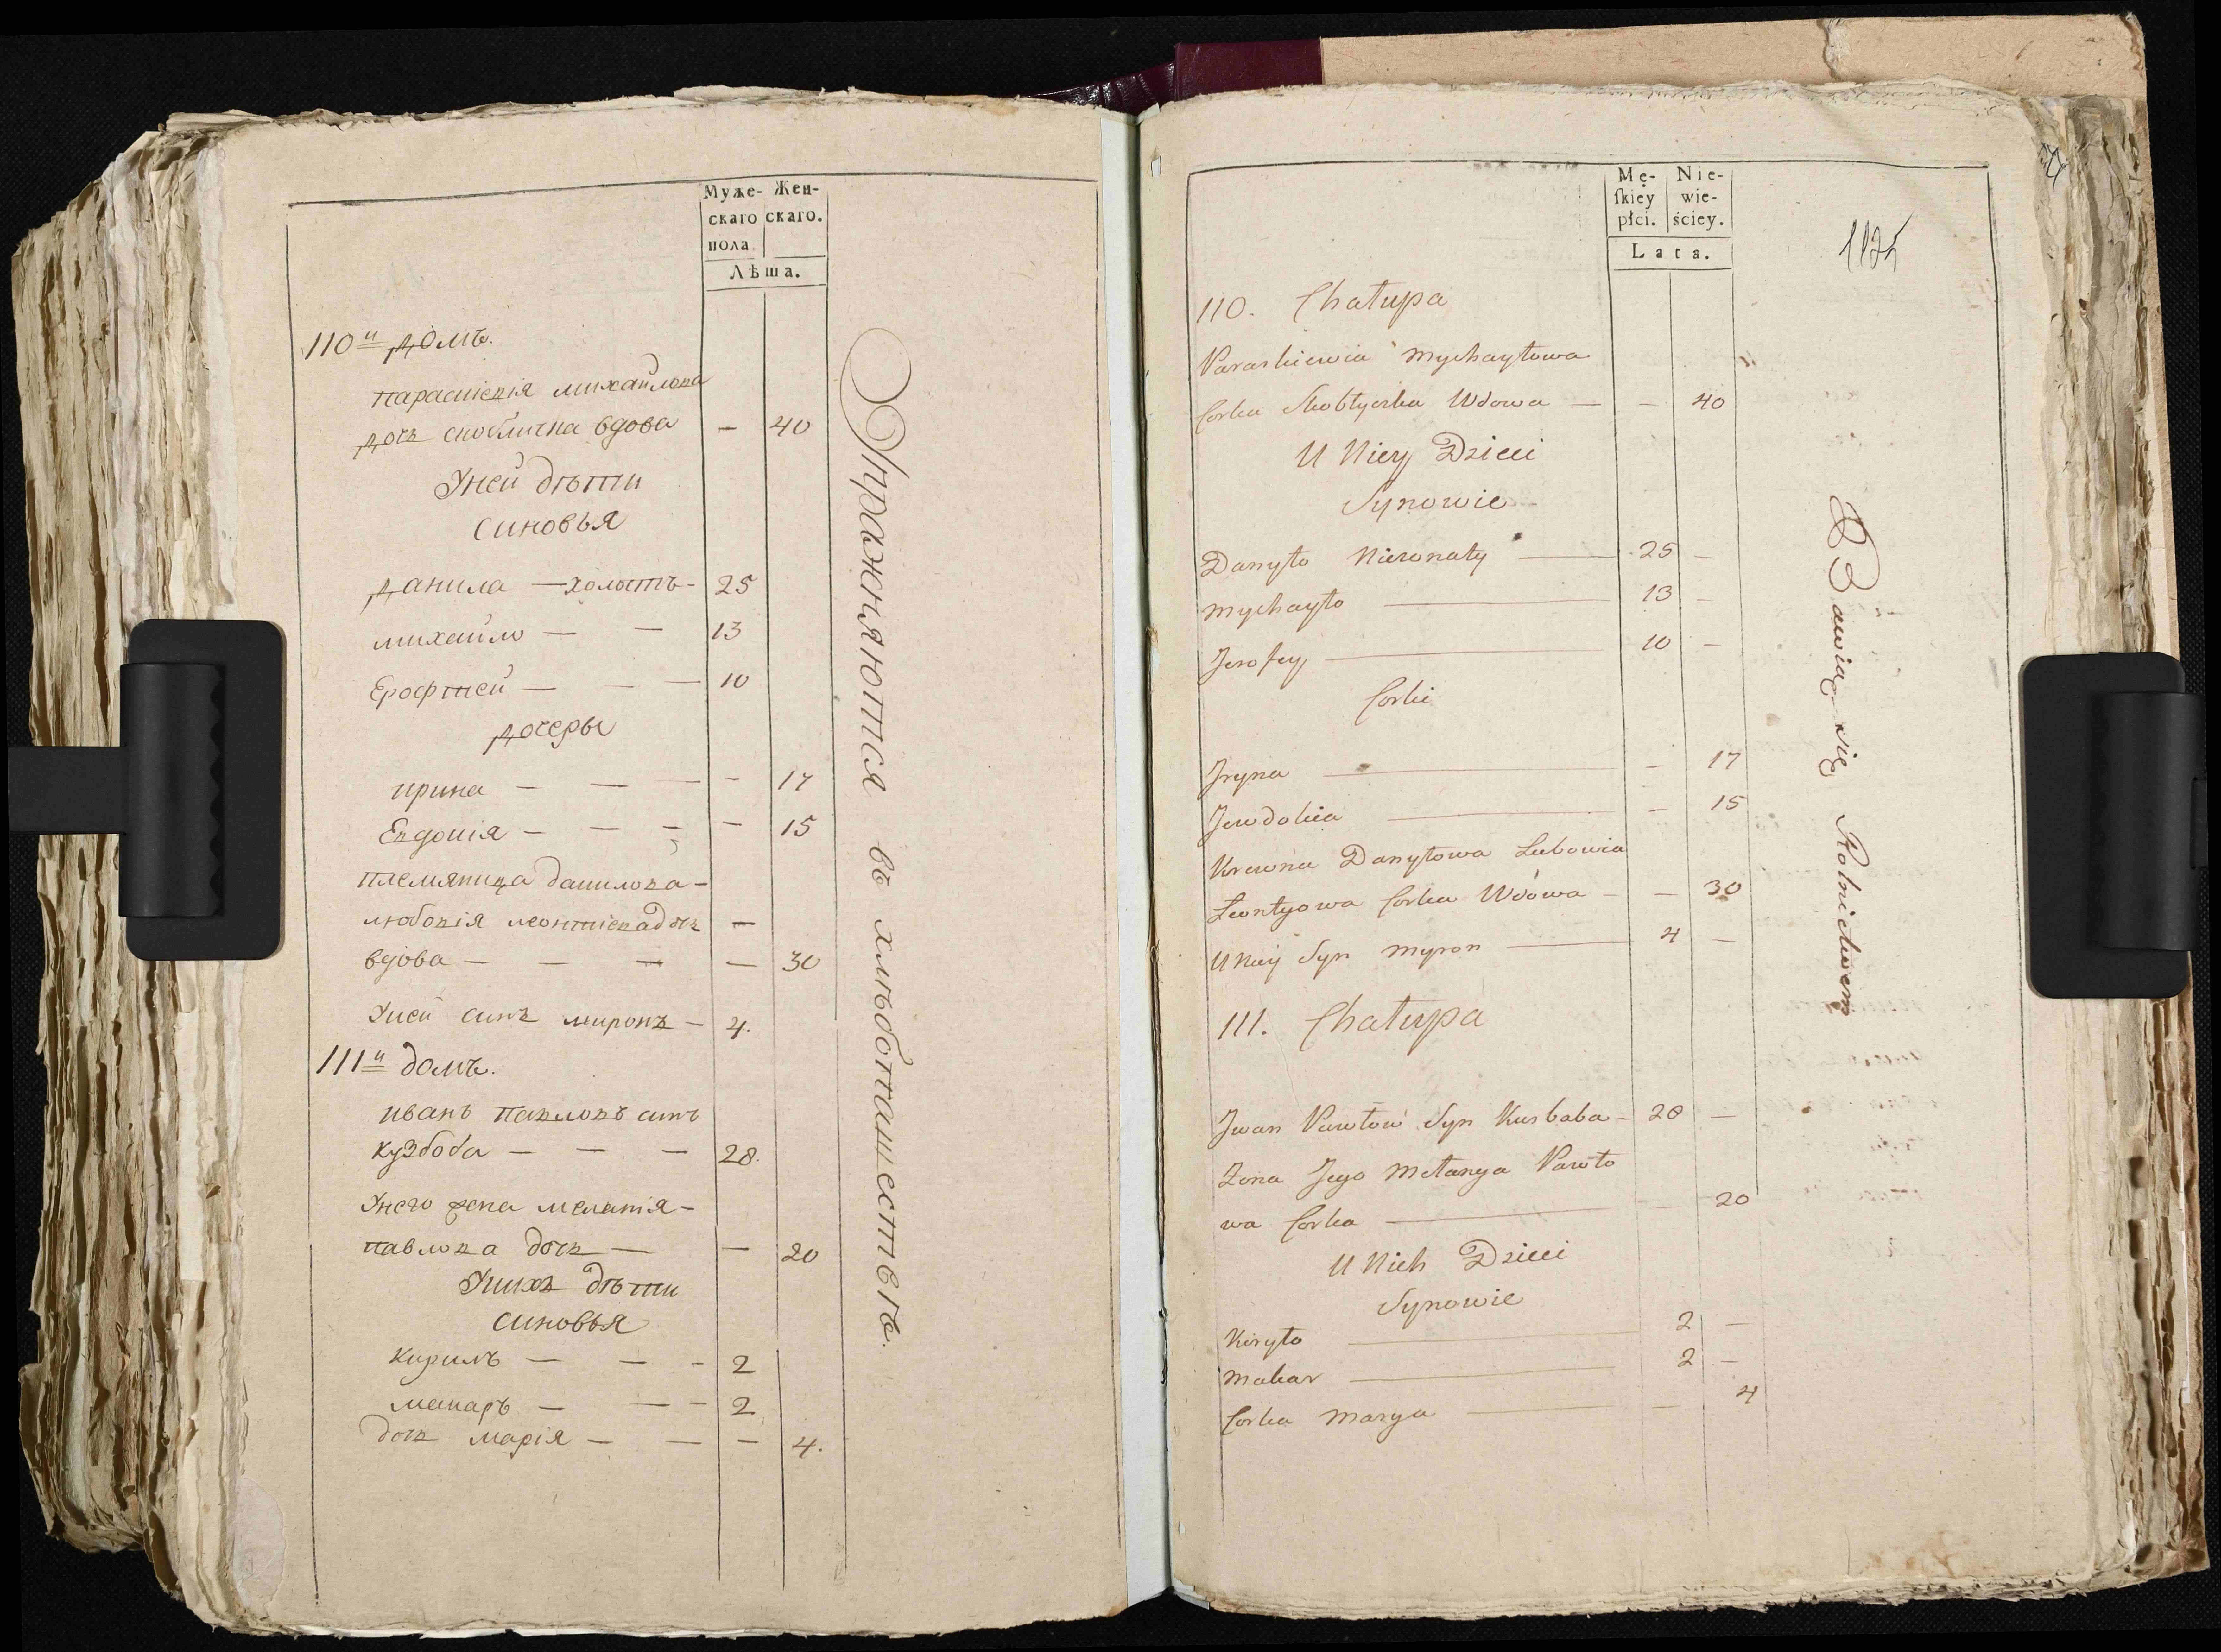 Муже- Жен-
скаго скаго.
пола
Лѣта.
110й домъ.
параскiевiя михайлова
дочь скобличка вдова — 40
Уней дѣти
синовья
данила — холостъ - 25
михайло — — 13
Ерофтей — — — 10
дочеры
ирина — — — — 17
Евдокiя — — — — 15
племяница данилова —
любовiя леонтiева дочь —
вдова — — — — 30
Уней синъ миронъ — 4.
111й домъ.
иванъ павловъ синъ
кузбоба — — — 28.
Унего жена меланiя —
павлова дочь — — 20
Унихъ дѣти
синовья
кирилъ — — - 2
макаръ — — - 2
дочь марiя — — — 4.
Упражняются въ хлѣбопашествѣ.
Mę- Nie-
skiey wie-
płci. ściey.
Lata.
1125
110. Chałupa
Paraskiewia Mychayłowa
Corka Skobłyczka Wdowa — — 40
U Niey Dzieci
Synowie
Danyło Nieżonaty — 25 —
Mychayło — 13 —
Jerofey — 10 —
Corki
Jryna — — 17
Jewdokia — — 15
Krewna Danyłowa Lubowia
Leontyowa Corka Wdowa — — 30
U Niey Syn Myron — 4 —
111. Chałupa
Jwan Pawłow Syn Kusbaba — 28 —
Żona Jego Mełanya Pawło
wa Corka — — 20
U Nich Dzieci
Synowie
Kiryło — 2 —
Makar — 2 —
Corka Marya — — 4
Bawią się Rolnictwem